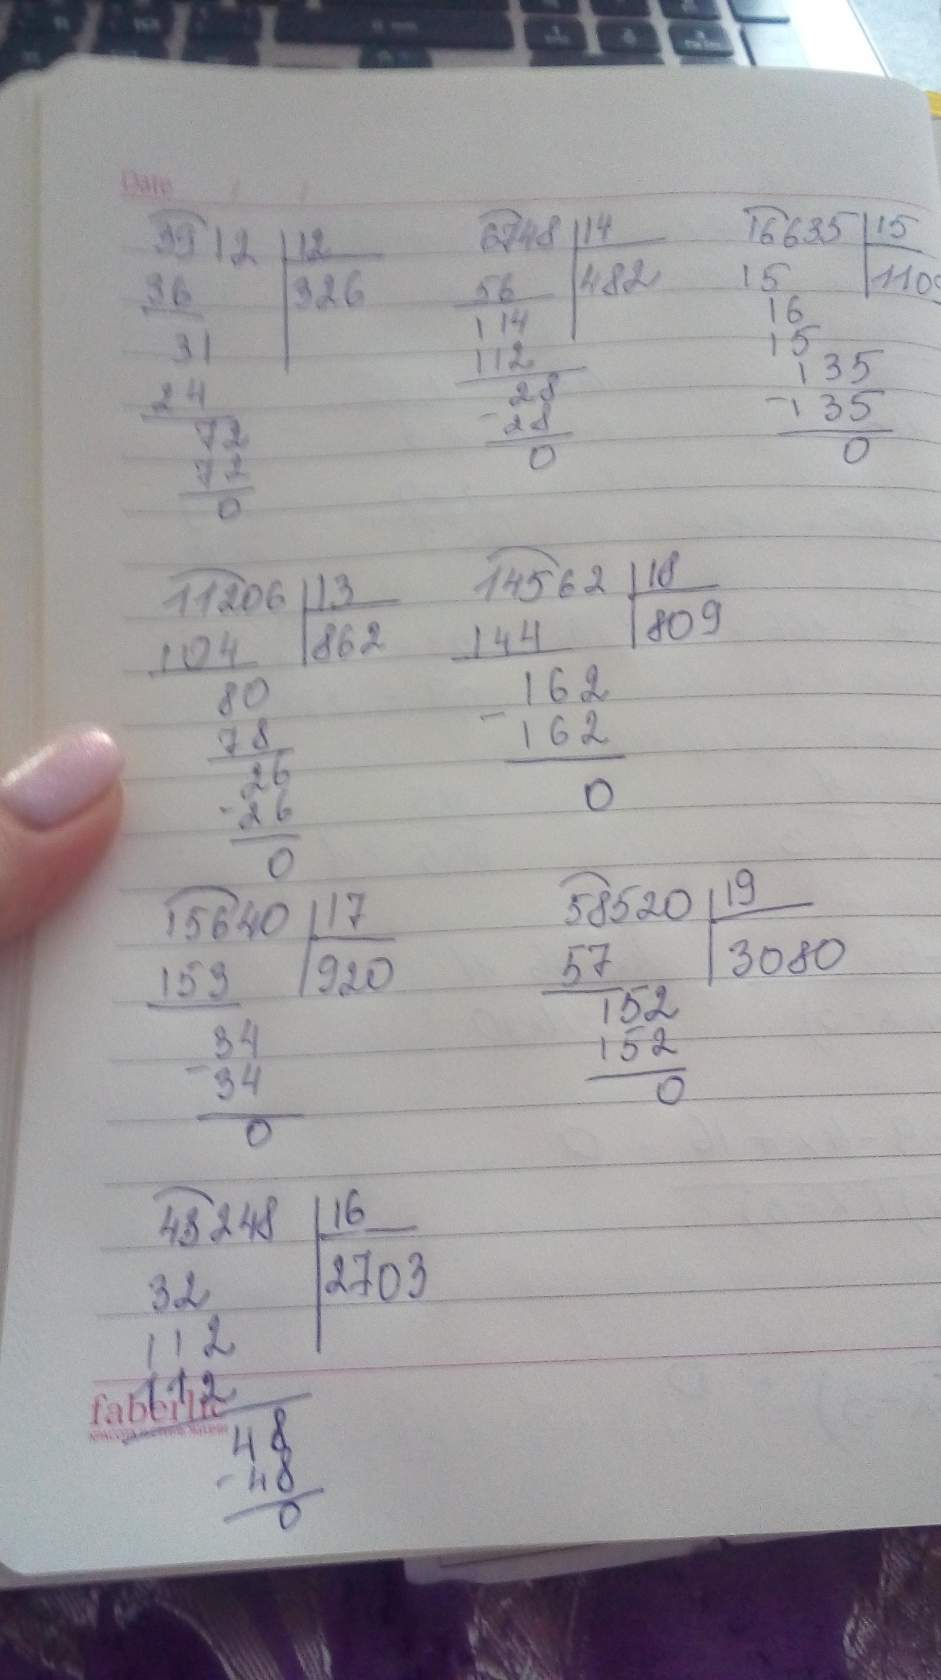 Date / /
3912 12 6748 14 16635 15
36 326 56 482 15
31 114 16
24 112 15
72 28 135
72 - 28 - 135
0 0 0
11206 13 14562 18
104 862 144 809
80 162
78 - 162
26 0
- 26
0
15640 17 58520 19
153 920 57 3080
34 152
- 34 152
0 0
43248 16
32 2703
112
112
faberlic
48
- 48
0